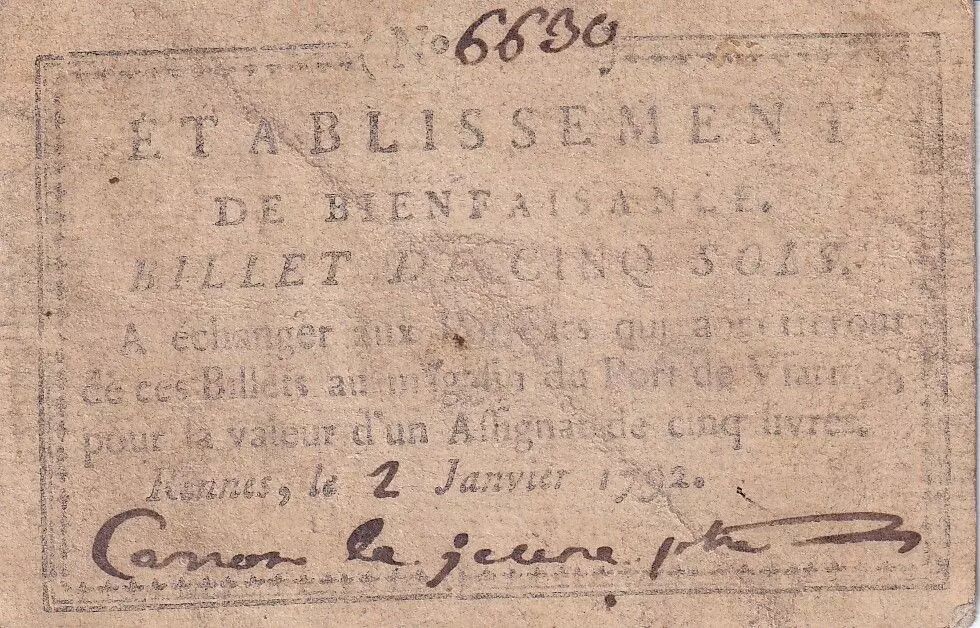 (No 6630)
ÉTABLISSEMENT
DE BIENFAISANCE.
BILLET DE CINQ SOLS.
A échanger aux Porteurs qui apporteront
de ces Billets au magaſin du Port de Viarme,
pour la valeur d'un Aſſignat de cinq livres.
Rennes, le 2 Janvier 1792.
le jeune